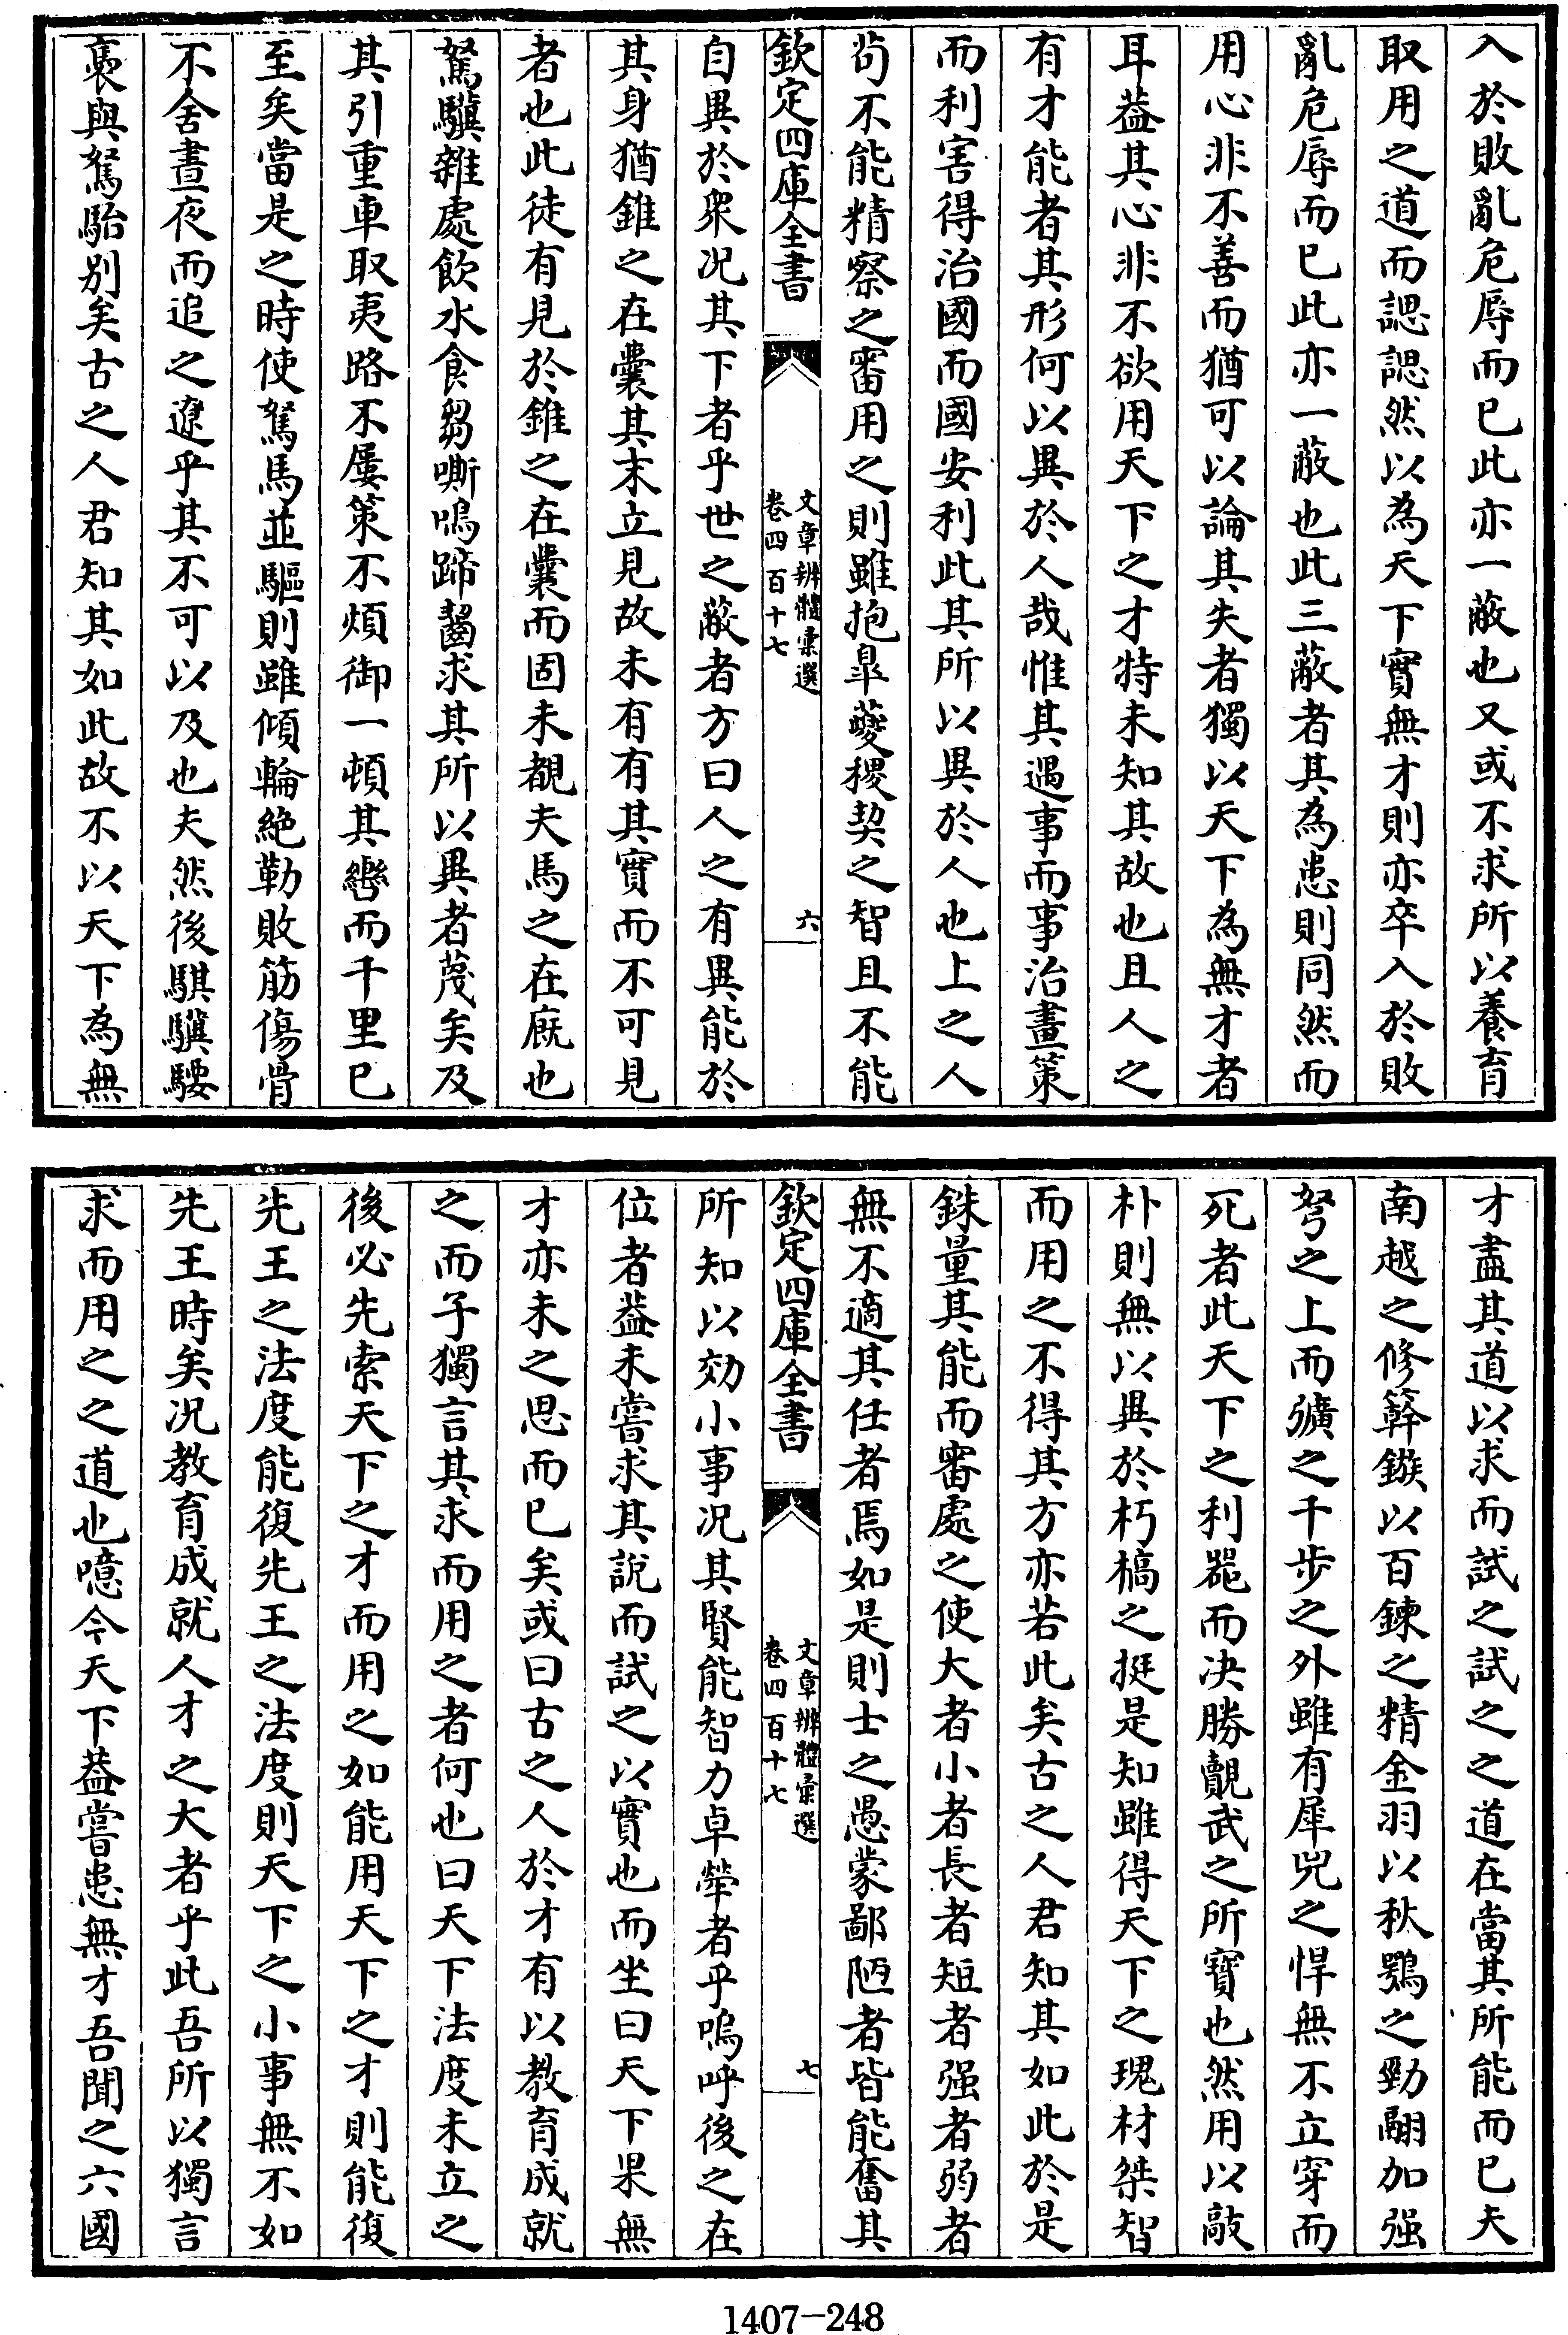 入於敗亂危辱而已此亦一蔽也又或不求所以養育
取用之道而諰諰然以為天下實無才則亦卒入於敗
亂危辱而已此亦一蔽也此三蔽者其為患則同然而
用心非不善而猶可以論其失者獨以天下為無才者
耳葢其心非不欲用天下之才特未知其故也且人之
有才能者其形何以異於人哉惟其遇事而事治畫策
而利害得治國而國安利此其所以異於人也上之人
茍不能精察之審用之則雖抱臯夔稷契之智且不能
欽定四庫全書
文章辨體彙選
卷四百十七
六
自異於衆况其下者乎世之蔽者方曰人之有異能於
其身猶錐之在囊其末立見故未有有其實而不可見
者也此徒有見於錐之在囊而固未覩夫馬之在廐也
駑驥雜處飲水食芻嘶鳴蹄齧求其所以異者蔑矣及
其引重車取夷路不屢策不煩御一頓其轡而千里已
至矣當是之時使駑馬並驅則雖傾輪絶勒敗筋傷骨
不舍晝夜而追之遼乎其不可以及也夫然後騏驥騕
褭與駑駘别矣古之人君知其如此故不以天下為無
才盡其道以求而試之試之之道在當其所能而已夫
南越之修簳鏃以百鍊之精金羽以秋鶚之勁翮加强
弩之上而彍之千步之外雖有犀兕之悍無不立穿而
死者此天下之利器而决勝覿武之所寳也然用以敲
朴則無以異於朽槁之挺是知雖得天下之瑰材桀智
而用之不得其方亦若此矣古之人君知其如此於是
銖量其能而審處之使大者小者長者短者强者弱者
無不適其任者焉如是則士之愚蒙鄙陋者皆能奮其
欽定四庫全書
文章辨體彙選
卷四百十七
七
所知以効小事况其賢能智力卓犖者乎嗚呼後之在
位者葢未嘗求其說而試之以實也而坐曰天下果無
才亦未之思而已矣或曰古之人於才有以教育成就
之而子獨言其求而用之者何也曰天下法度未立之
後必先索天下之才而用之如能用天下之才則能復
先王之法度能復先王之法度則天下之小事無不如
先王時矣况教育成就人才之大者乎此吾所以獨言
求而用之之道也噫今天下葢嘗患無才吾聞之六國
1407-248